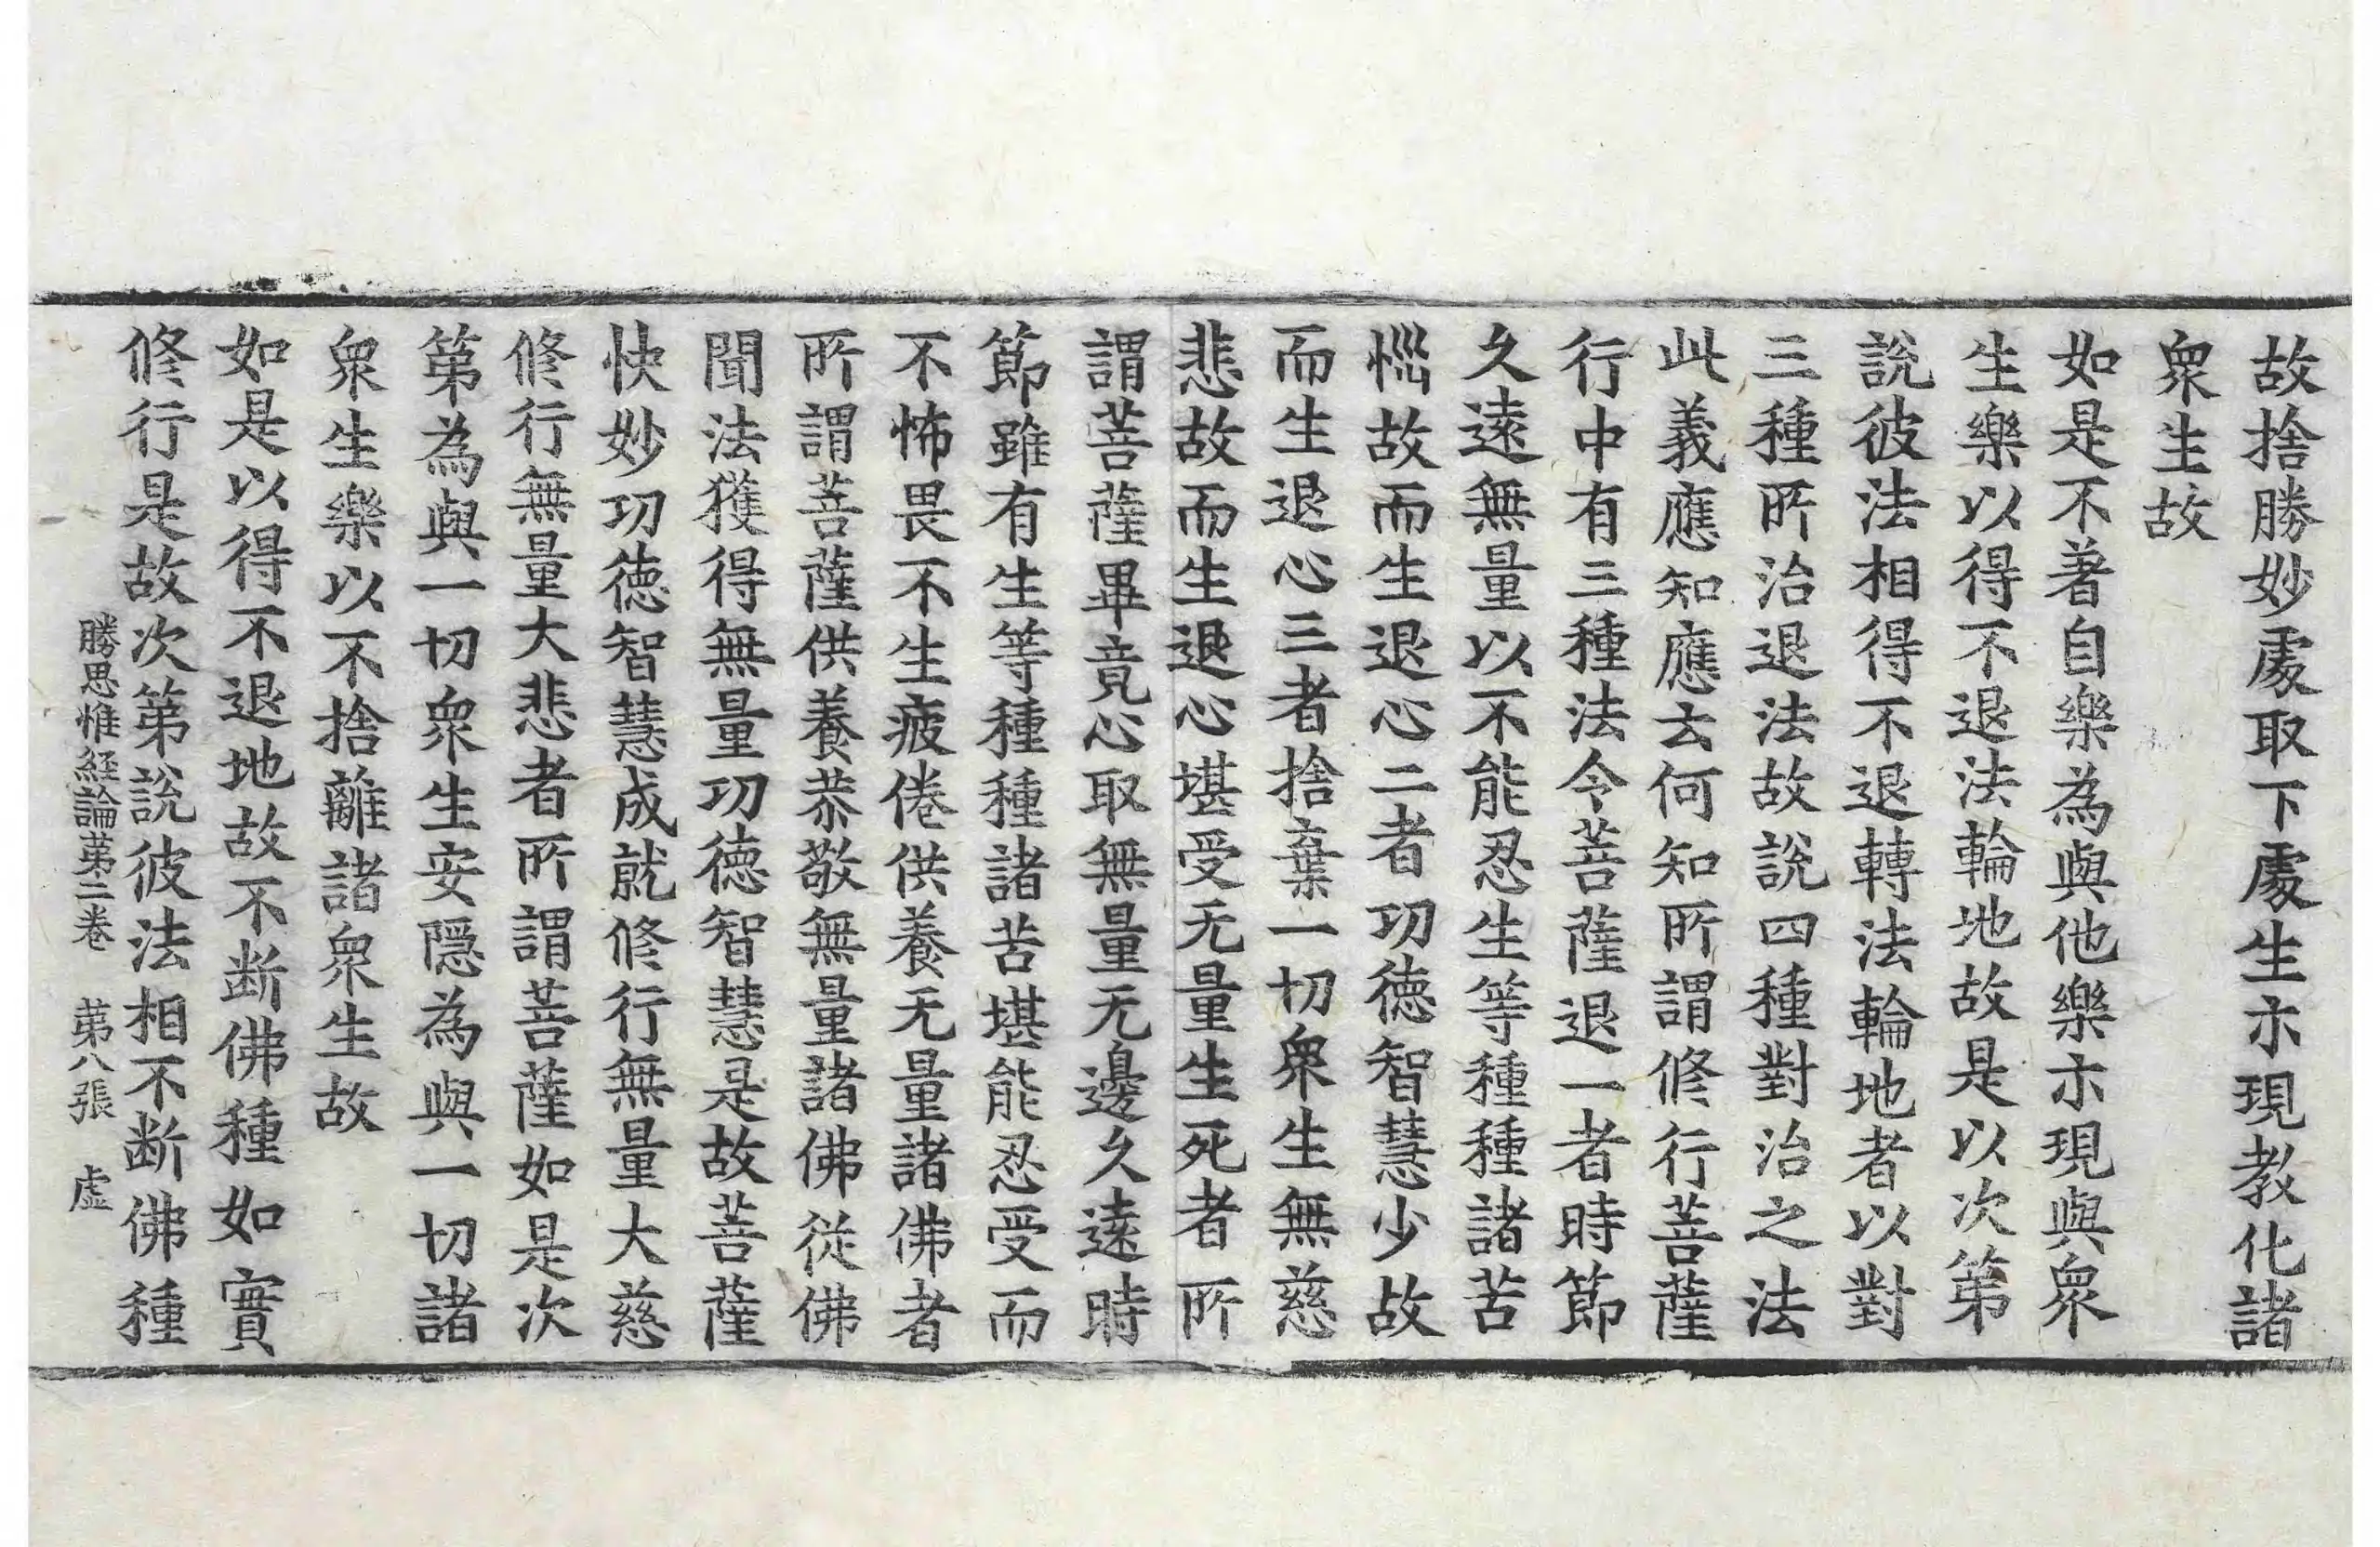 故捨勝妙處取下處生示現教化諸
衆生故
如是不著自樂為與他樂示現與衆
生樂以得不退法輪地故是以次第
說彼法相得不退轉法輪地者以對
三種所治退法故說四種對治之法
此義應知應云何知所謂修行菩薩
行中有三種法令菩薩退一者時節
久遠無量以不能忍生等種種諸苦
惱故而生退心二者功德智慧少故
而生退心三者捨棄一切衆生無慈
悲故而生退心堪受无量生死者所
謂菩薩畢竟心取無量无邊久遠時
節雖有生等種種諸苦堪能忍受而
不怖畏不生疲倦供養无量諸佛者
所謂菩薩供養恭敬無量諸佛從佛
聞法獲得無量功德智慧是故菩薩
快妙功德智慧成就修行無量大慈
修行無量大悲者所謂菩薩如是次
第為與一切衆生安隱為與一切諸
衆生樂以不捨離諸衆生故
如是以得不退地故不断佛種如實
修行是故次第說彼法相不断佛種
勝思惟経論苐二卷　苐八張　虛